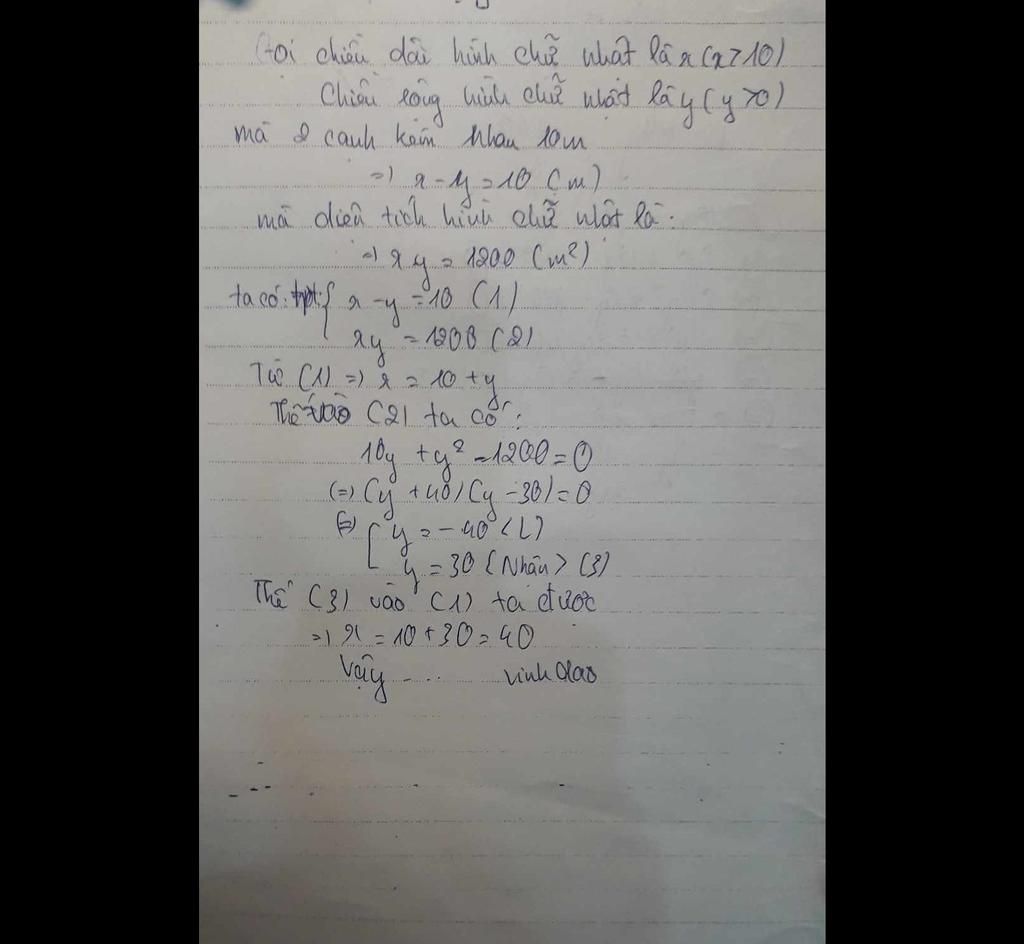 Gọi chiều dài hình chữ nhật là x (x > 10)
Chiều rộng hình chữ nhật là y (y > 0)
mà 2 cạnh kém nhau 10m
=) x - y = 10 (m)
mà diện tích hình chữ nhật là:
=) xy = 1200 (m²)
ta có: hpt: { x - y = 10 (1)
xy = 1200 (2)
Từ (1) =) x = 10 + y
Thế vào (2) ta có:
10y + y² - 1200 = 0
(=) (y + 40) (y - 30) = 0
(=) [ y = -40 <L>
y = 30 <Nhận> (3)
Thế (3) vào (1) ta được
=) x = 10 + 30 = 40
Vậy ... vinh Dao